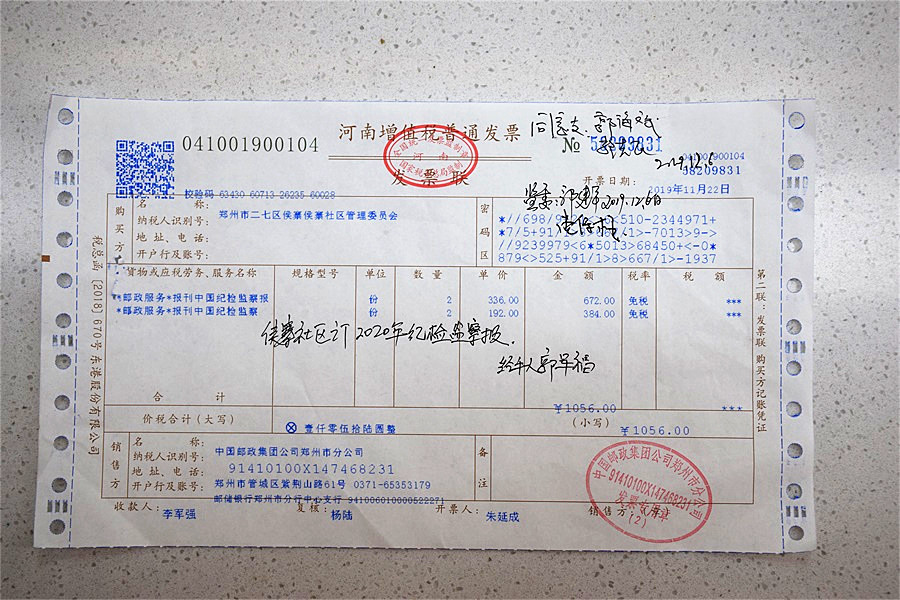 河南增值税普通发票
发票联
041001900104
No 58209831
041001900104
58209831
校验码 63430 60713 26235 60028
开票日期：2019年11月22日
同意支
2019.12.6
2019.12.6日
购买方
名称：郑州市二七区侯寨侯寨社区管理委员会
纳税人识别号：
地址、电话：
开户行及账号：
密码区
879<>525+91/1>8>667/1>-1937
货物或应税劳务、服务名称 规格型号 单位 数量 单价 金额 税率 税额
*邮政服务*报刊中国纪检监察报 份 2 336.00 672.00 免税 ***
*邮政服务*报刊中国纪检监察 份 2 192.00 384.00 免税 ***
侯寨社区订2020年纪检监察报.
经手人
合计 ¥1056.00 ***
价税合计（大写） ⊗壹仟零伍拾陆圆整 （小写） ¥1056.00
销售方
名称：中国邮政集团公司郑州市分公司
纳税人识别号：91410100X147468231
地址、电话：郑州市管城区紫荆山路61号 0371-65353179
开户行及账号：邮储银行郑州市分行中心支行 941006010000522271
备注
收款人：李军强 复核：杨陆 开票人：朱延成 销售方：（章）
中国邮政集团公司郑州市分公司
91410100X147468231
发票专用章
（2）
税总函［2018］670号东港股份有限公司
第二联：发票联 购买方记账凭证